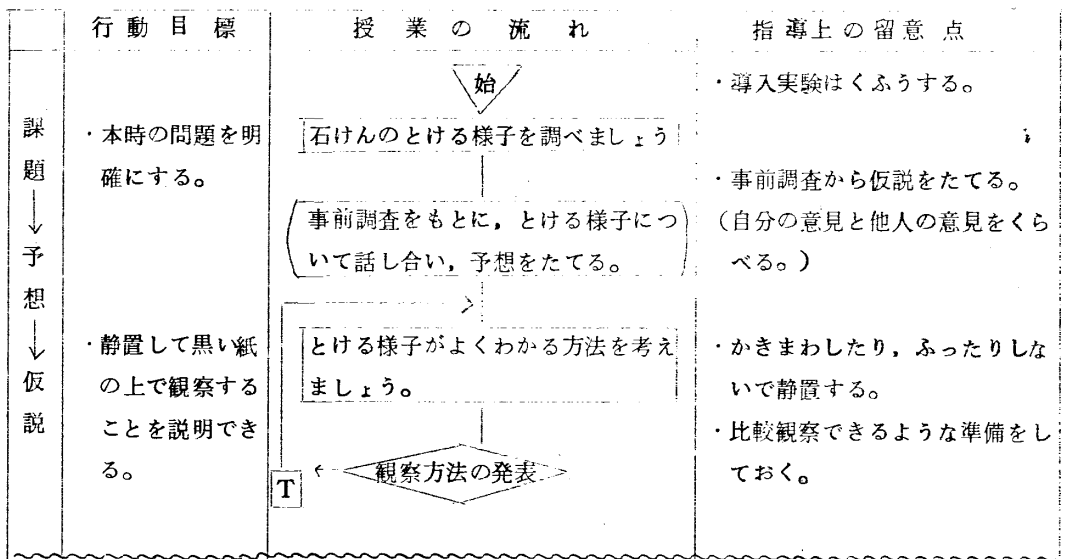 行動目標
授業の流れ
指導上の留意点
課題→予想→仮説
・本時の問題を明
確にする。
・静置して黒い紙
の上で観察する
ことを説明でき
る。
始
石けんのとける様子を調べましょう
事前調査をもとに，とける様子につ
いて話し合い，予想をたてる。
とける様子がよくわかる方法を考え
ましょう。
観察方法の発表
T
・導入実験はくふうする。
・事前調査から仮説をたてる。
（自分の意見と他人の意見をくら
べる。）
・かきまわしたり，ふったりしな
いで静置する。
・比較観察できるような準備をし
ておく。